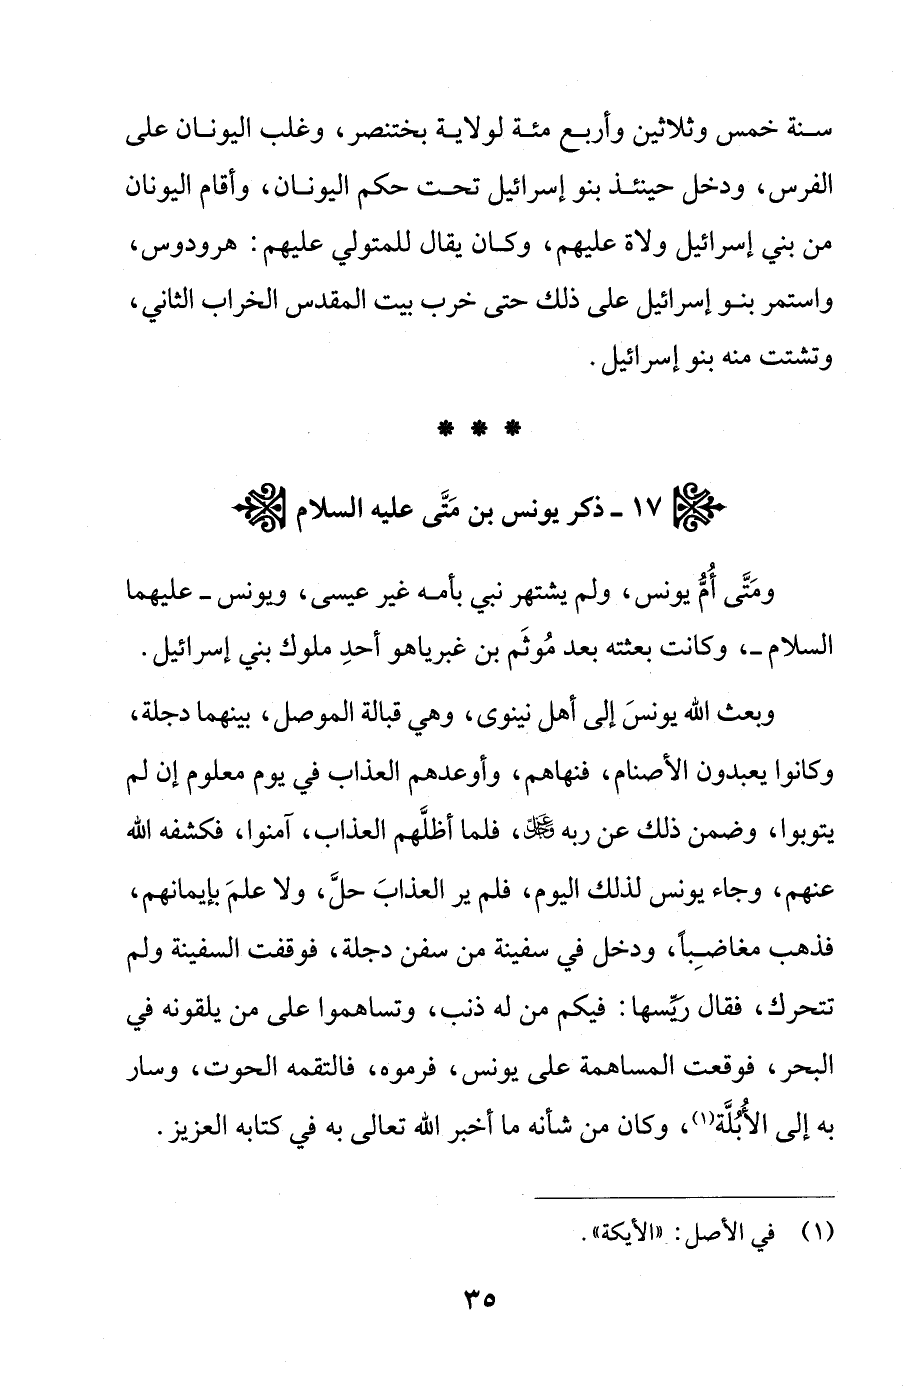 سنة خمس وثلاثين وأربع مئة لولاية بختنصر، وغلب اليونان على
الفرس، ودخل حينئذ بنو إسرائيل تحت حكم اليونان، وأقام اليونان
من بني إسرائيل ولاة عليهم، وكان يقال للمتولي عليهم: هرودوس،
واستمر بنو إسرائيل على ذلك حتى خرب بيت المقدس الخراب الثاني،
وتشتت منه بنو إسرائيل.
* * *
١٧ - ذكر يونس بن مَتَّى عليه السلام
ومَتَّى أُمُّ يونس، ولم يشتهر نبي بأمه غير عيسى، ويونس - عليهما
السلام -، وكانت بعثته بعد مُوثَم بن غبرياهو أحدِ ملوك بني إسرائيل.
وبعث الله يونسَ إلى أهل نينوى، وهي قبالة الموصل، بينهما دجلة،
وكانوا يعبدون الأصنام، فنهاهم، وأوعدهم العذاب في يوم معلوم إن لم
يتوبوا، وضمن ذلك عن ربه ﷻ، فلما أظلَّهم العذاب، آمنوا، فكشفه الله
عنهم، وجاء يونس لذلك اليوم، فلم ير العذابَ حلَّ، ولا علمَ بإيمانهم،
فذهب مغاضِباً، ودخل في سفينة من سفن دجلة، فوقفت السفينة ولم
تتحرك، فقال ريِّسها: فيكم من له ذنب، وتساهموا على من يلقونه في
البحر، فوقعت المساهمة على يونس، فرموه، فالتقمه الحوت، وسار
به إلى الأُبُلَّة(١)، وكان من شأنه ما أخبر الله تعالى به في كتابه العزيز.
(١) في الأصل: «الأيكة».
٣٥